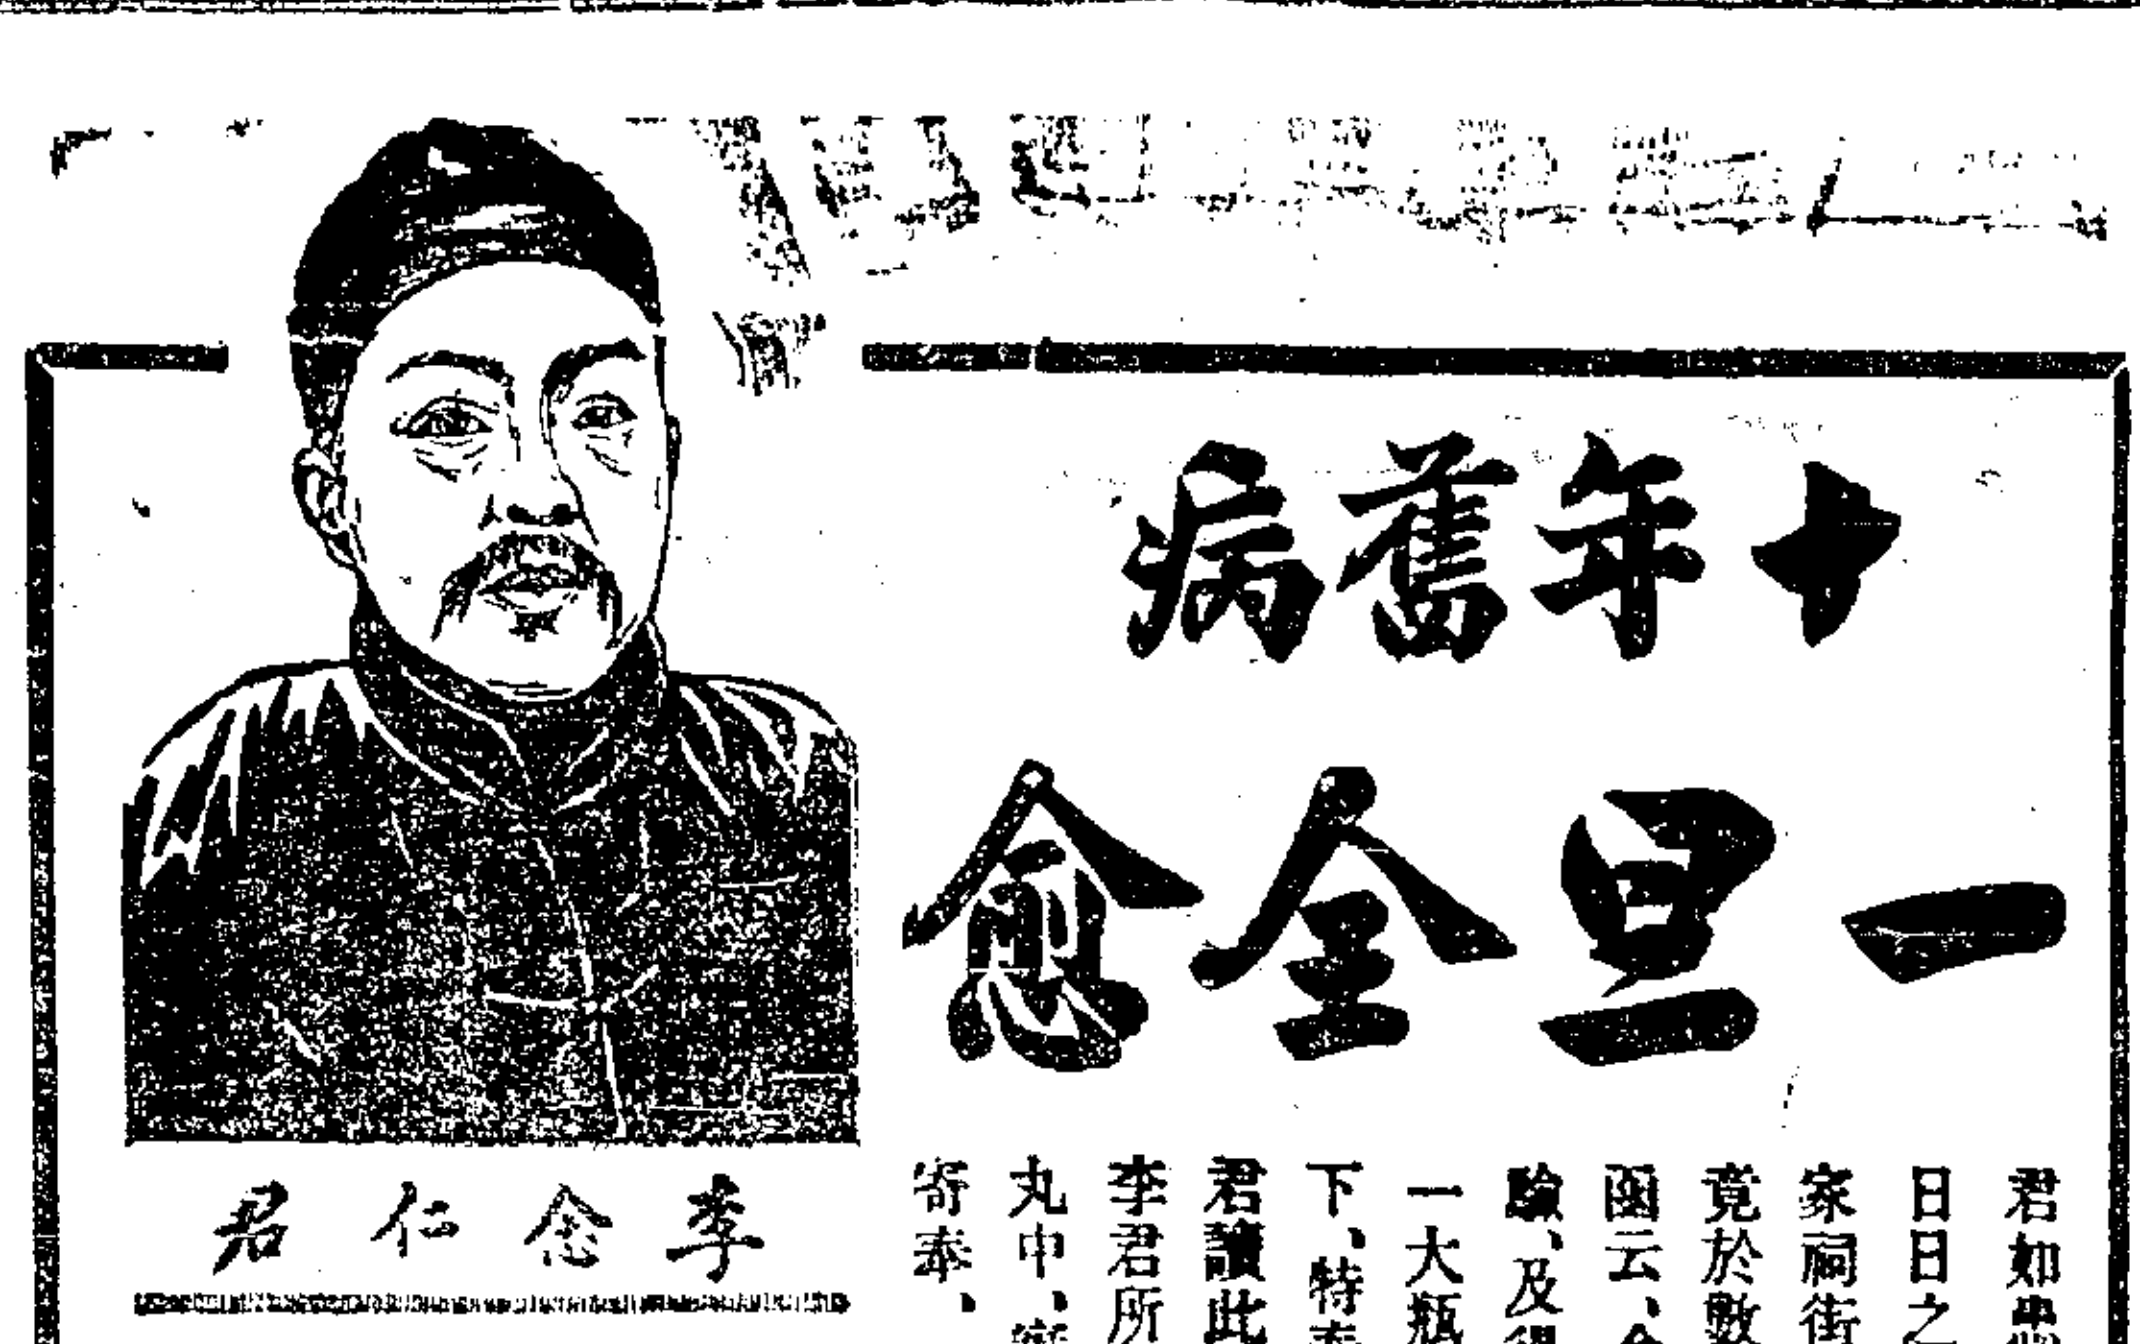 十年舊病
一旦全愈
李念仁君
君如患
日日之
家祠街
竟於數
函云、
驗、及得
一大瓶
下、特奉
君讀此
李君所
丸中、
寄奉、